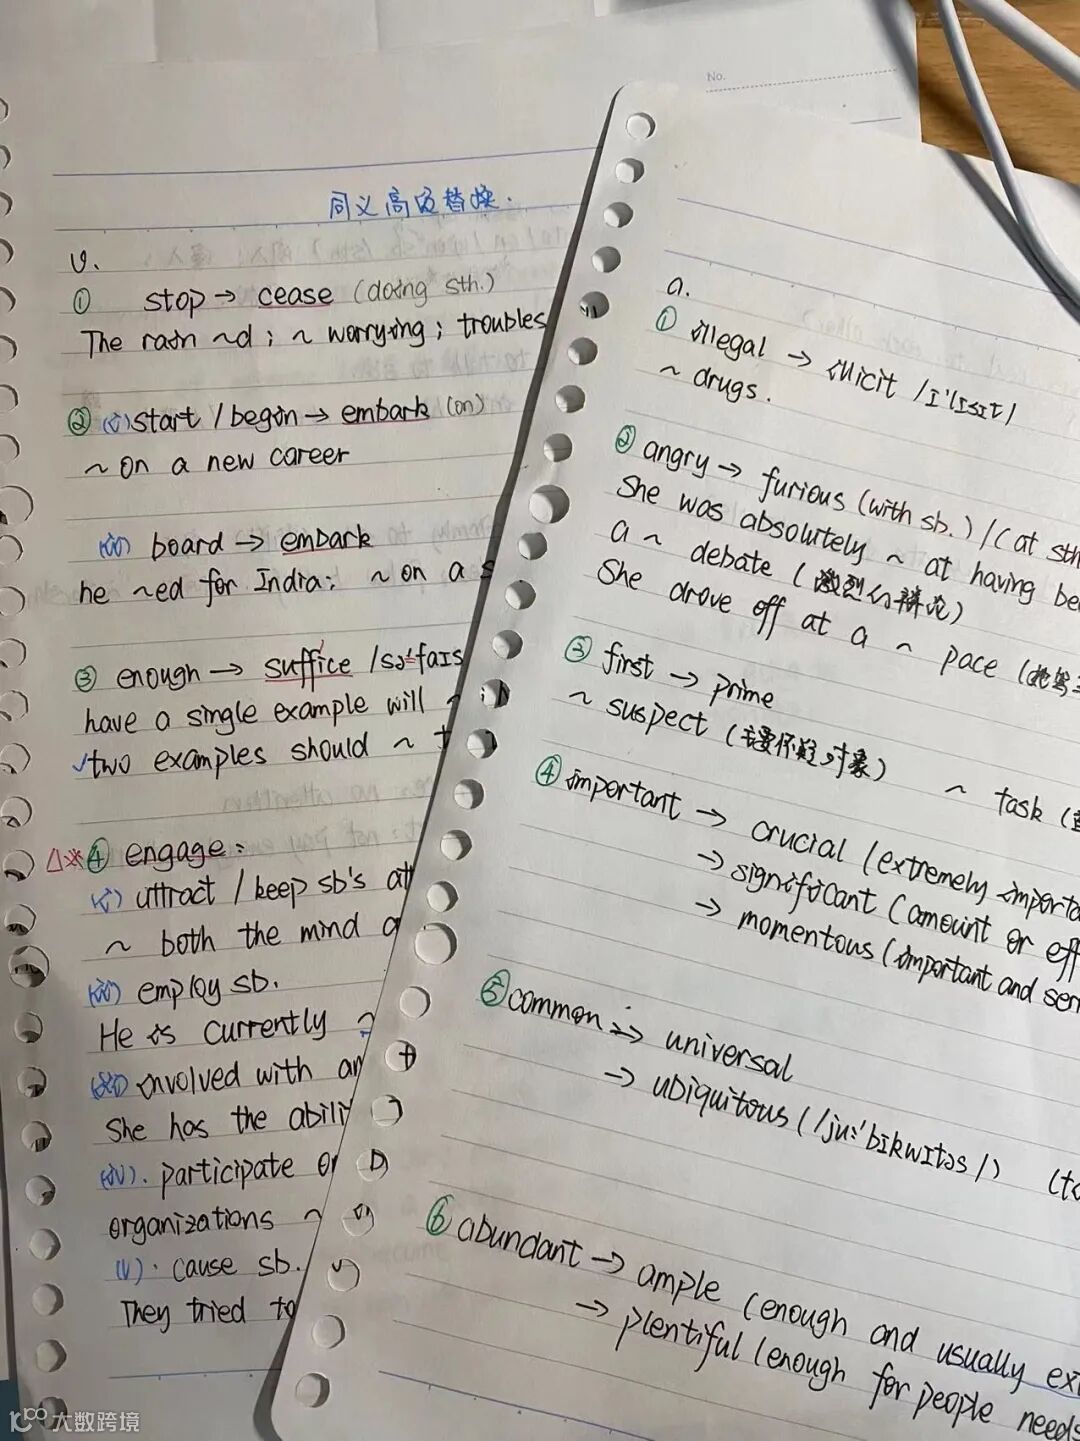 No.
同义高级替换.
v.
① stop → cease (doing sth.)
The rain ~d ; ~ worrying ; troubles
② (i) start / begin → embark (on)
~ on a new career
(ii) board → embark
he ~ed for India; ~ on a s
③ enough → suffice /sə'faɪs
have a single example will ~
✓two examples should ~ t
△※④ engage:
(i) attract / keep sb's at
~ both the mind a
(ii) employ sb.
He is currently ~
(iii) involved with an
She has the abili
(iv). participate
organizations ~
(v). cause sb.
They tried to
a.
① illegal → illicit /ɪ'lɪsɪt/
~ drugs.
② angry → furious (with sb.) / (at sth
She was absolutely ~ at having bee
a ~ debate (激烈的辩论)
She drove off at a ~ pace
③ first → prime
~ suspect (主要怀疑对象) ~ task (
④ important → crucial (extremely importa
→ significant (amount or eff
→ momentous (important and seri
⑤ common → universal
→ ubiquitous (/ju:'bɪkwɪtəs/)
⑥ abundant → ample (enough and usually ext
→ plentiful (enough for people needs
大数跨境